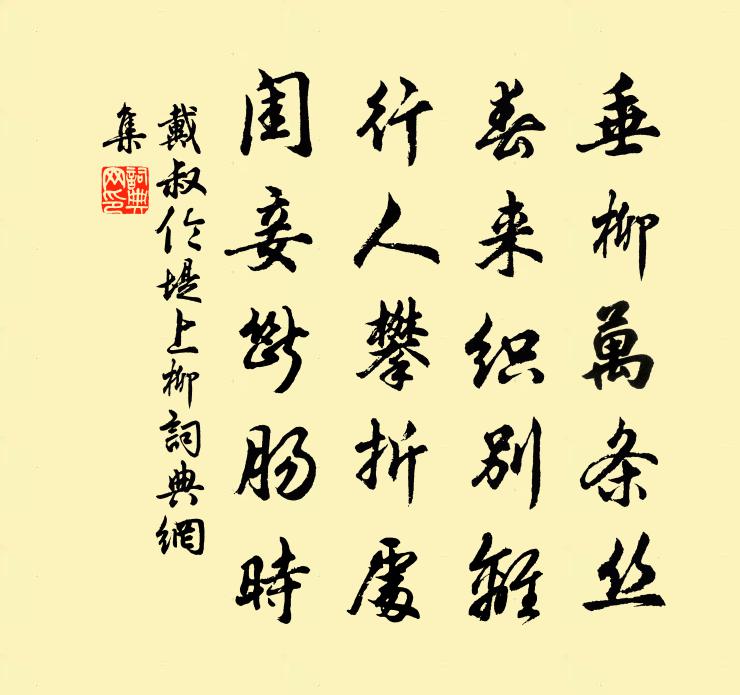 垂柳萬条丝
春来织别離
行人攀折處
闺妾断肠時
戴叔伦堤上柳詞典網
集
詞典
网印